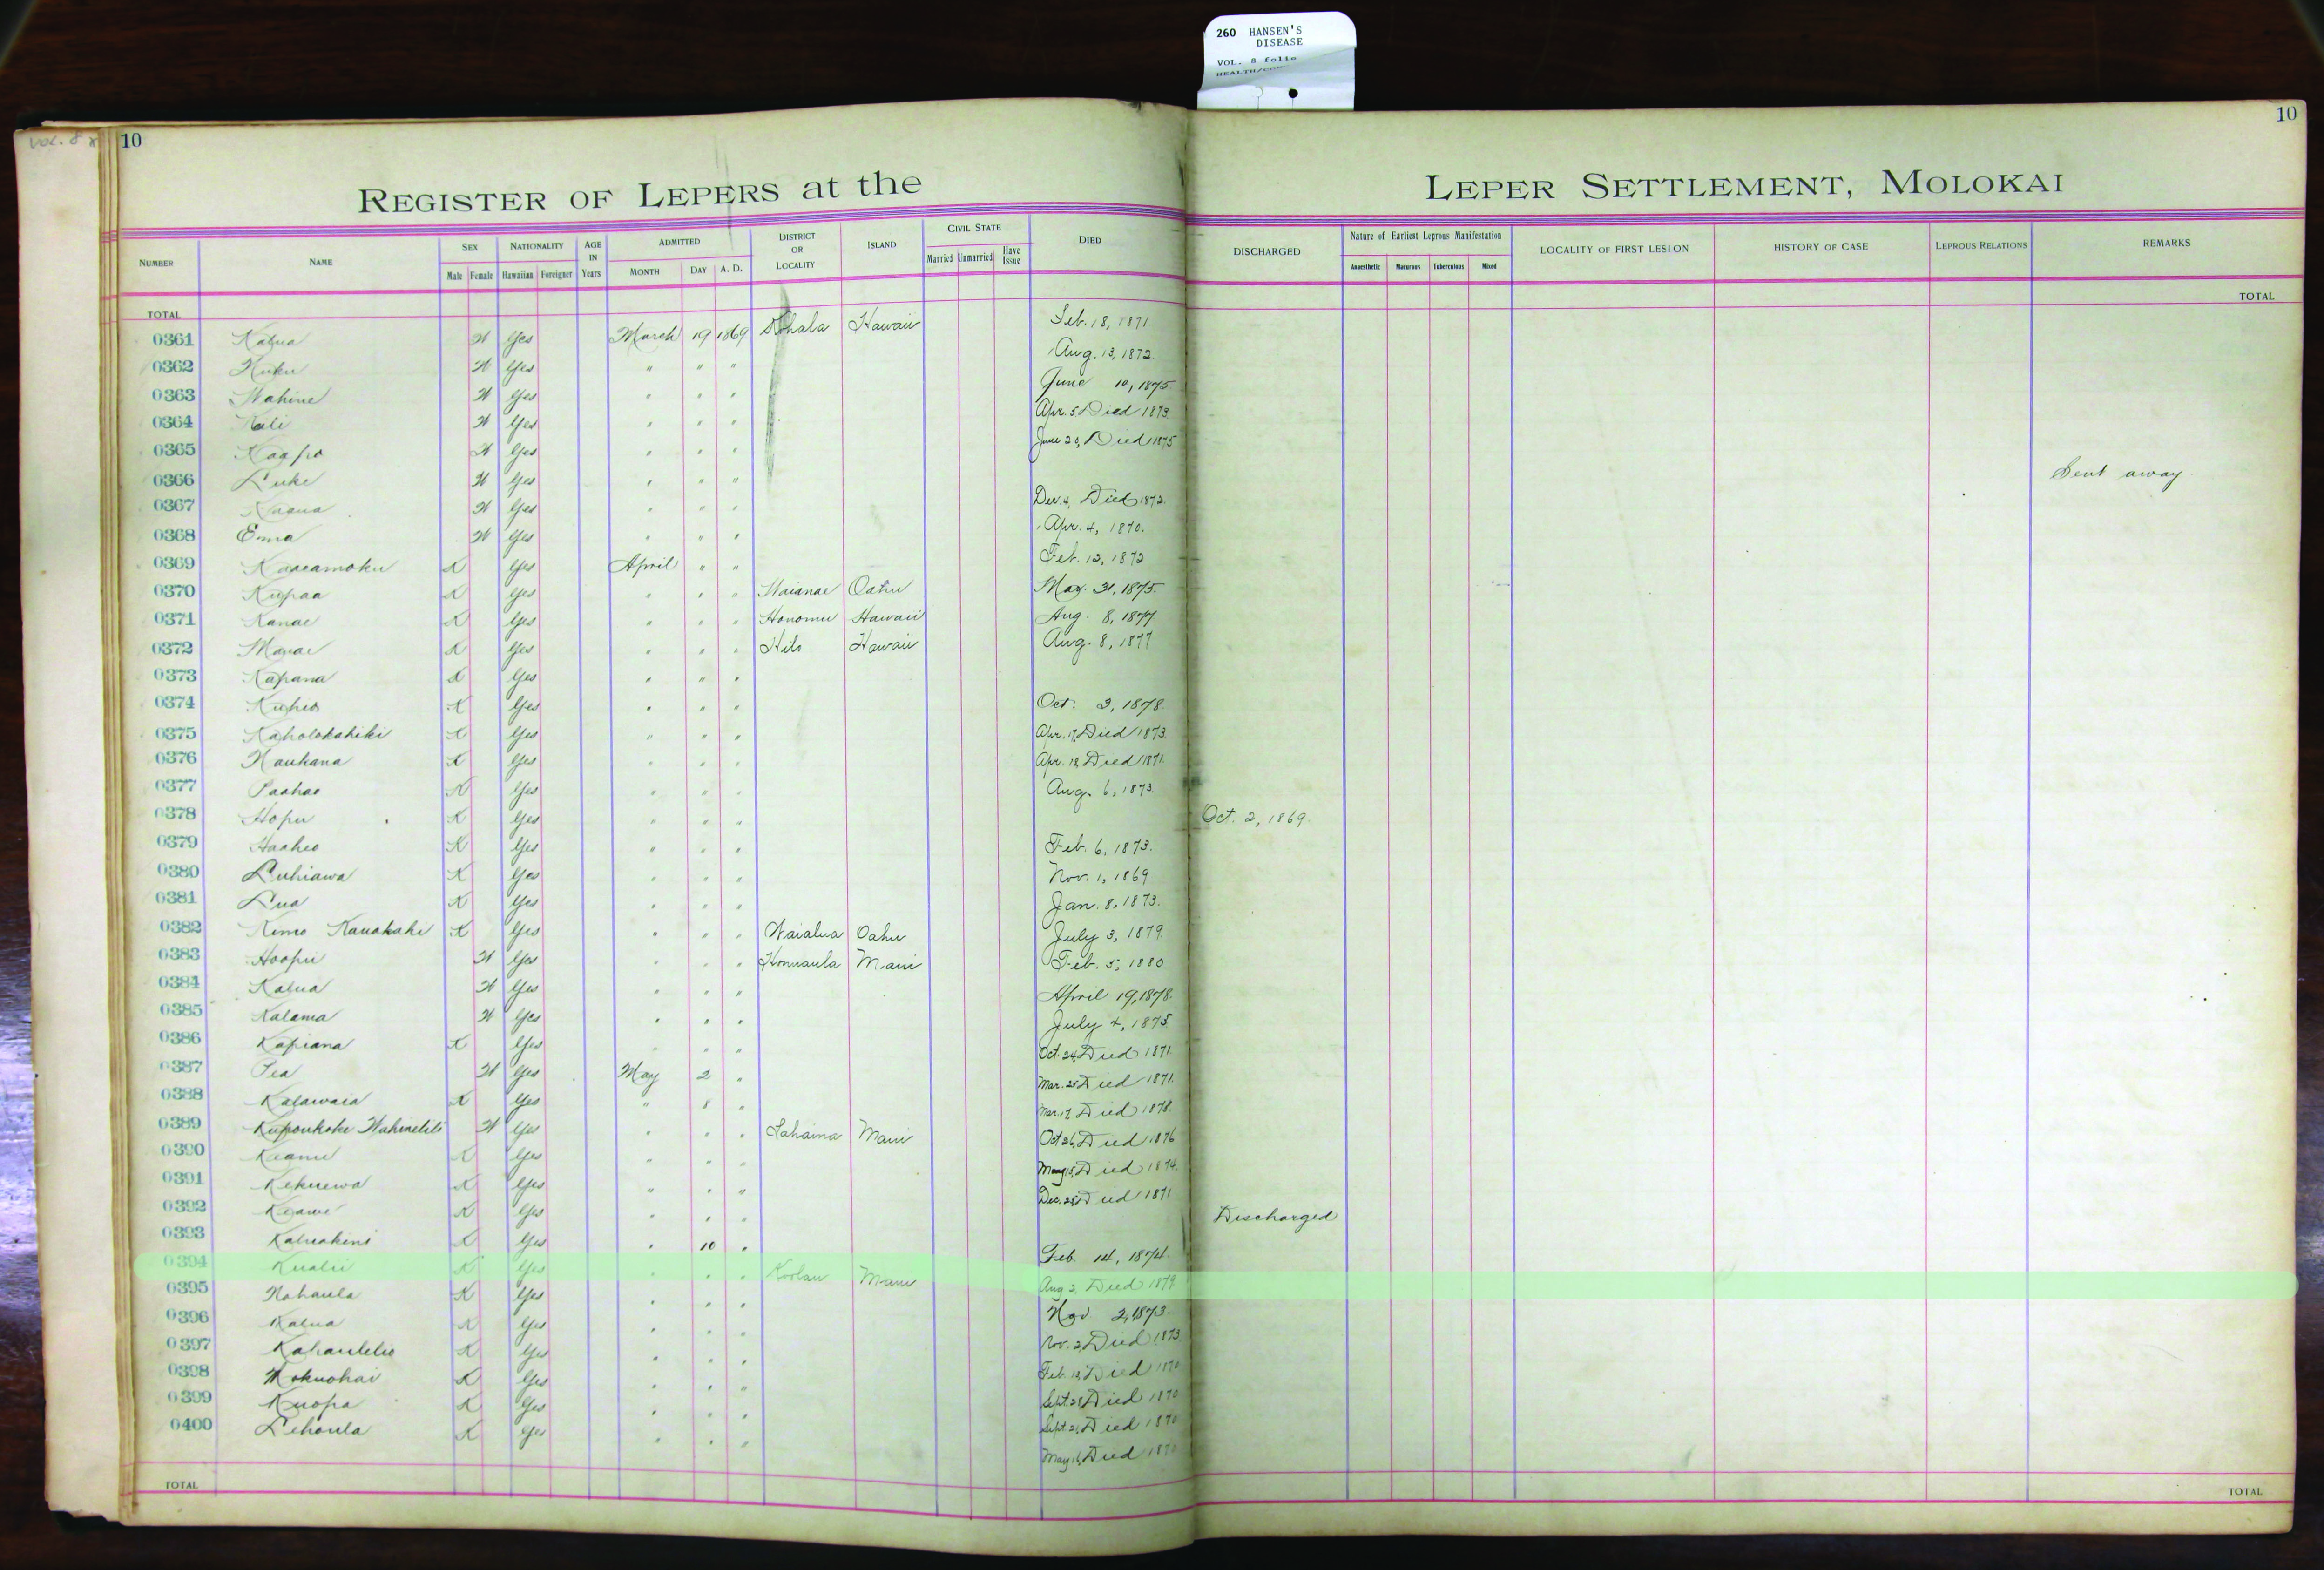 260 HANSEN'S
DISEASE
VOL. 8 folio
VOL. 8
10
10
REGISTER OF LEPERS at the LEPER SETTLEMENT, MOLOKAI
NUMBER NAME SEX Male Female NATIONALITY Hawaiian Foreigner AGE IN Years ADMITTED MONTH DAY A. D. DISTRICT OR LOCALITY ISLAND CIVIL STATE Married Unmarried Have Issue DIED DISCHARGED Nature of Earliest Leprous Manifestation Anaesthetic Macurous Tuberculous Mixed LOCALITY OF FIRST LESION HISTORY OF CASE LEPROUS RELATIONS REMARKS
TOTAL TOTAL
0361 Kalua W Yes March 19 1869 Kohala Hawaii Feb. 18, 1871
0362 Kuku W Yes " " " Aug. 13, 1872.
0363 Wahine W Yes " " " June 10, 1875
0364 Kali W Yes " " " Apr. 5 Died 1873.
0365 Kaapo W Yes " " " June 20, Died 1875
0366 Luke W Yes " " " Sent away
0367 W Yes " " " Dec. 4, Died 1872.
0368 Emma W Yes " " " Apr. 4, 1870.
0369 Kaaeamoku K Yes April " " Feb. 12, 1872
0370 Kupaa K Yes " " " Waianae Oahu May. 31, 1875.
0371 Kanae K Yes " " " Honomu Hawaii Aug. 8, 1877
0372 Manae K Yes " " " Hilo Hawaii Aug. 8, 1877
0373 Kapana K Yes " " "
0374 Kuheo K Yes " " " Oct. 3, 1878.
0375 Kaholokahiki K Yes " " " Apr. 17, Died 1873.
0376 Naukana K Yes " " " Apr. 18 Died 1871.
0377 Paahao K Yes " " " Aug. 6, 1873.
0378 Hopu K Yes " " " Oct. 2, 1869.
0379 Haaheo K Yes " " " Feb. 6, 1873.
0380 Luhiawa K Yes " " " Nov. 1, 1869
0381 Lua K Yes " " " Jan. 8, 1873.
0382 Kimo Kauakahi K Yes " " " Waialua Oahu July 3, 1879.
0383 Hoopii W Yes " " " Honuaula Maui Feb. 5, 1880
0384 Kalua W Yes " " " April 19, 1878.
0385 Kalama W Yes " " " July 4, 1875
0386 Kapiana K Yes " " " Oct. 24, Died 1871.
0387 Pea W Yes May 2 " Mar. 25 Died 1871.
0388 Kalawaia K Yes " 8 " Mar. 17, Died 1878.
0389 Kupoukoki Wahinelili W Yes " " " Lahaina Maui Oct 26, Died 1876
0390 Keanu K Yes " " " May 15, Died 1874.
0391 Kekuewa K Yes " " " Dec. 28, Died 1871
0392 Keawe K Yes " " " Discharged
0393 Kaluakini K Yes " 10 " Feb. 14, 1874.
0394 Kualii K Yes " " " Koolau Maui Aug 2, Died 1879.
0395 Nohaula K Yes " " " Nov 2, 1873.
0396 Kalua K Yes " " " Nov. 2, Died 1873
0397 Kahaulelio K Yes " " " Feb. 18, Died 1870
0398 Mokuohai K Yes " " " Sept. 28, Died 1870
0399 Kuopa K Yes " " " Sept. 21, Died 1870
0400 Lehoula K Yes " " " May 16, Died 1870
TOTAL TOTAL